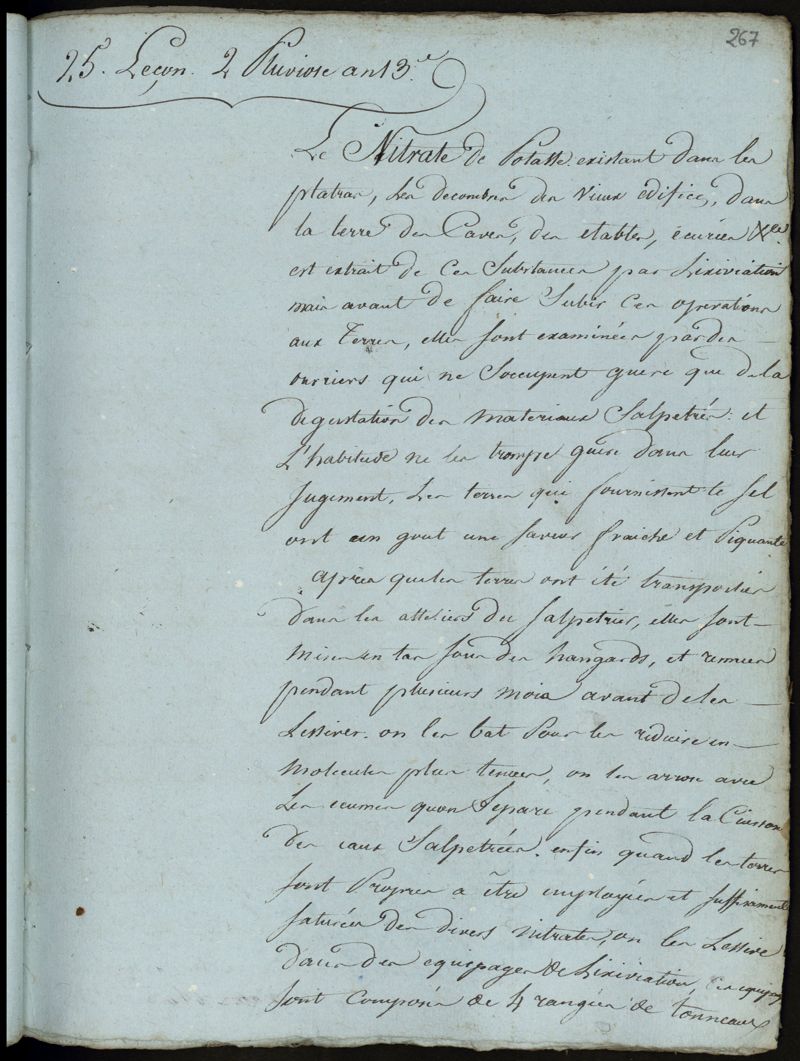 267
25.e Leçon. 2 Pluviose an 13.e
Le Nitrate de Potasse existant dans les
platras, Les decombres des vieux édifices, dans
la terre des Caves, des etables, écuries &ce.
est extrait de ces Substances par Lixiviation
mais avant de faire Subir ces operations
aux Terres, elles sont examinées par des
ouvriers qui ne Soccupent guere que de la
degustation des materiaux Salpetrés. et
L'habitude ne les trompe guère dans leur
jugement. Les terres qui fournissent le sel
ont un gout une saveur fraiche et Piquante
après que les terres ont été transportées
dans les atteliers du salpetrier, elles sont
mises en tas sous des hangards, et remuées
pendant plusieurs mois avant de les
Lessiver. on les bat Pour les réduire en
molecules plus tenues, on les arrose avec
Les ecumes quon Separe pendant la Cuisson
des eaux Salpetrées. enfin quand les terres
sont Propres a être employées et suffisament
saturées des divers nitrates, on les Lessive
dans des equipages de Lixiviation, ces equipages
sont Composés de 4 rangées de tonneaux